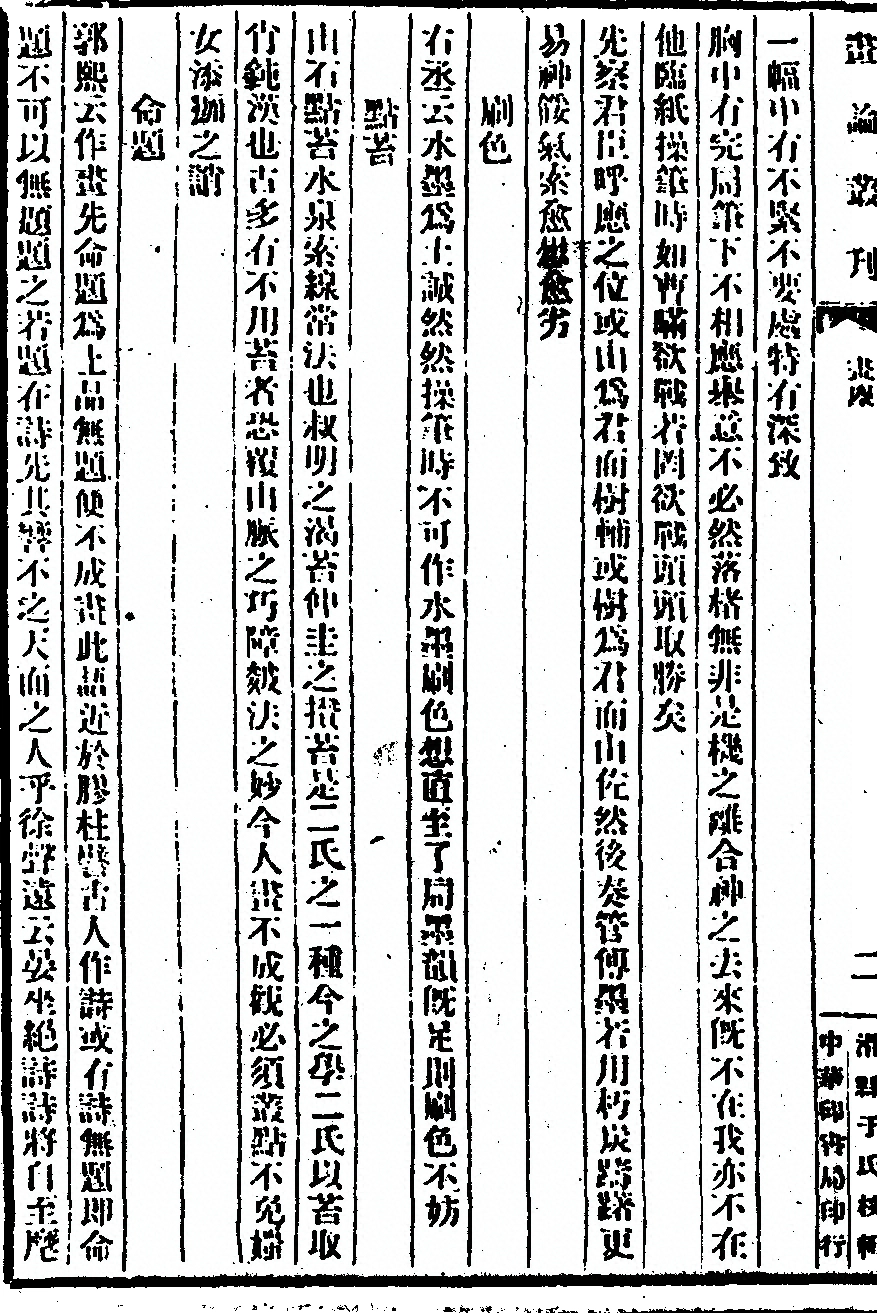 畫論叢刊
畫麈
二
一幅中有不緊不要處特有深致
胸中有完局筆下不相應舉意不必然落楮無非是機之離合神之去來既不在我亦不在
他臨紙操筆時如曹瞞欲戰若罔欲戰頭頭取勝矣
先察君臣呼應之位或山爲君而樹輔或樹爲君而山佐然後奏管傅墨若用朽炭躊躇更
易神餒氣索愈想愈劣
刷色
右丞云水墨爲上誠然然操筆時不可作水墨刷色想直至了局墨韻既足則刷色不妨
點苔
山石點苔水泉索線常法也叔明之渴苔仲圭之攢苔是二氏之一種今之學二氏以苔取
肖鈍漢也古多有不用苔者恐覆山脈之巧障皴法之妙今人畫不成觀必須叢點不免媸
女添痂之誚
命題
郭熙云作畫先命題爲上品無題便不成畫此語近於膠柱譬古人作詩或有詩無題即命
題不可以無題題之若題在詩先其響不之天而之人乎徐聲遠云晏坐絕詩詩將自至麾
濰縣于氏校輯
中華印書局印行